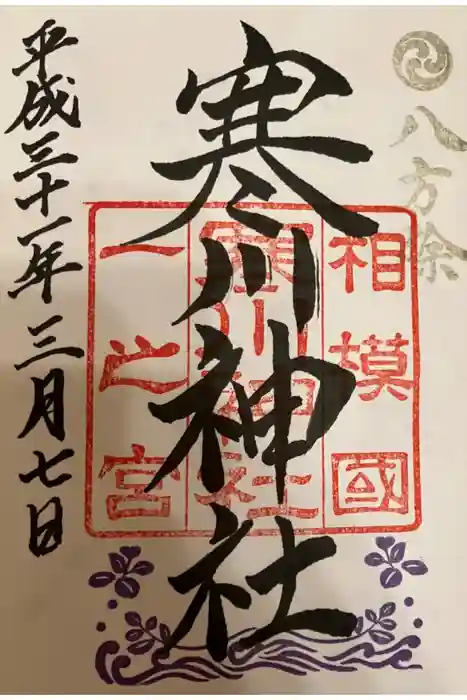 八方除
相模國
寒川神社
一之宮
寒川神社
平成三十一年三月七日